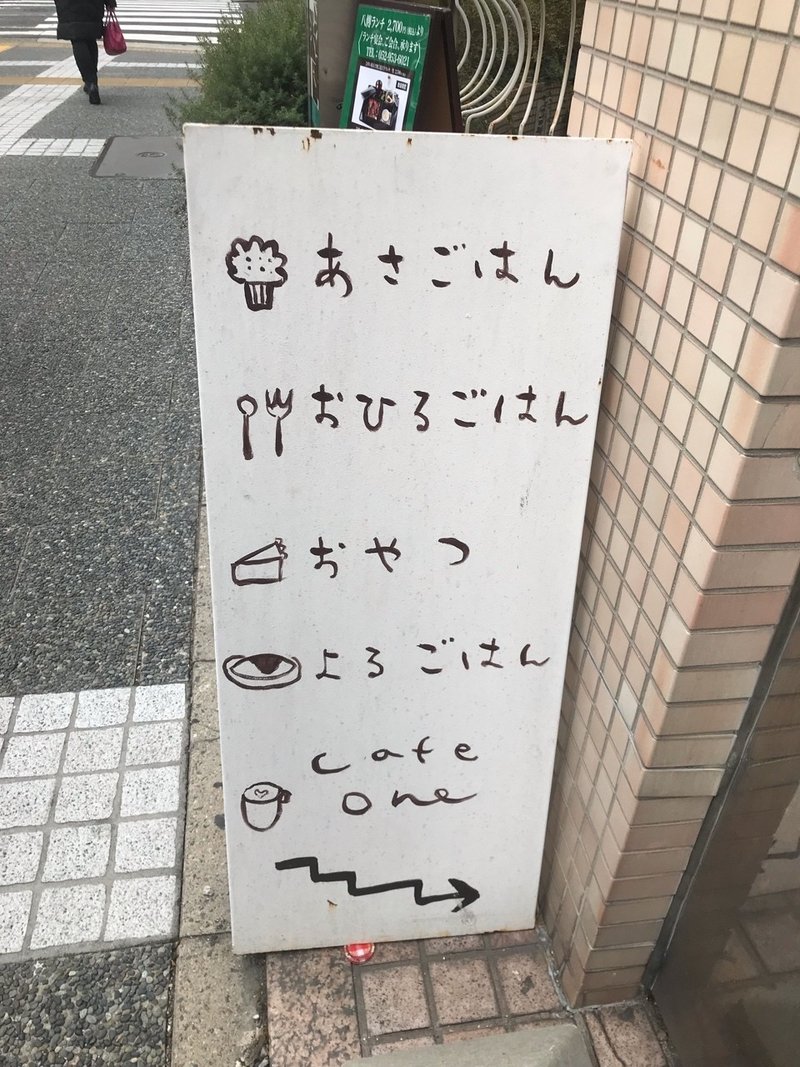 八勝ランチ 2,700円(税込)より
ランチ宴会、ご会合、承ります!
TEL:052-953-6021
あさごはん
おひるごはん
おやつ
よるごはん
cafe
one